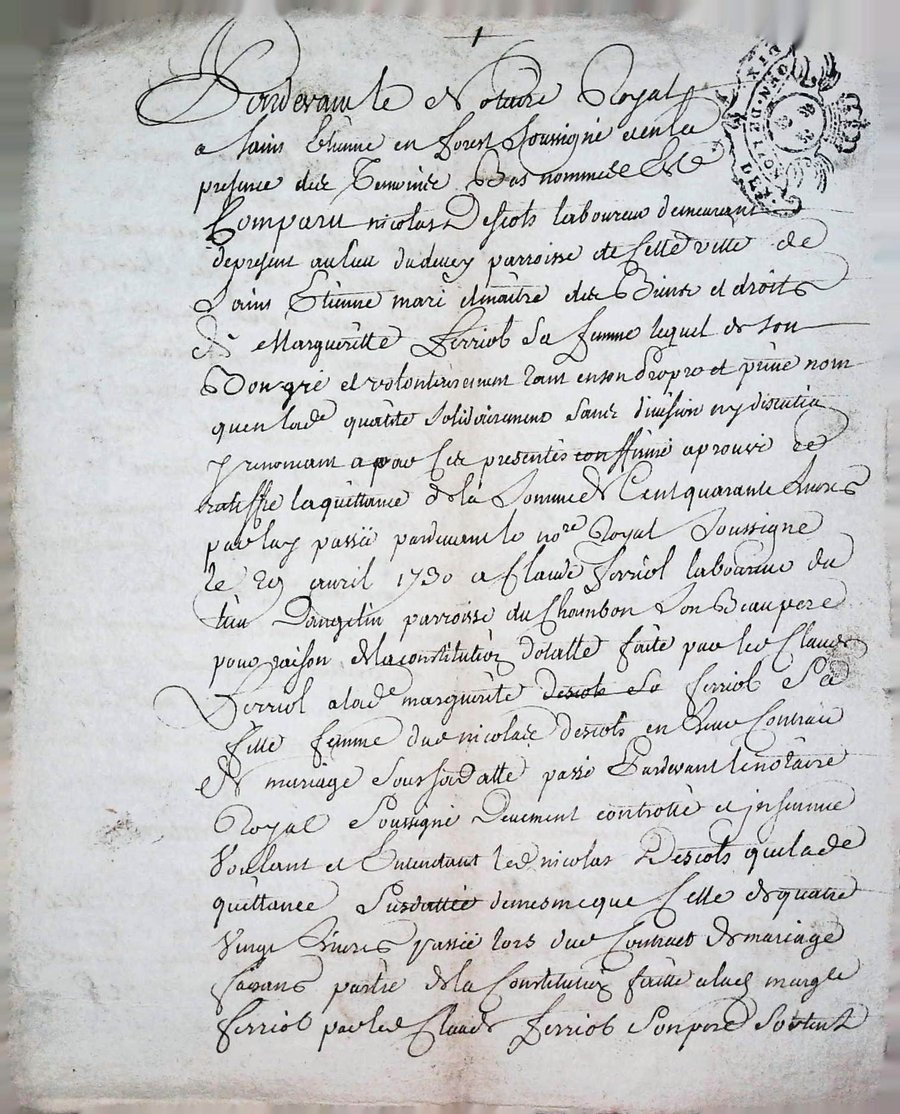 Pardevant le Notaire Royal
a saint Etienne en forest soussigné et en la
presence des Temoins Bas nommes Est
Comparu nicolas Descots laboureur demeurant
depresent au lieu du parroisse de Cette ville de
Saint Etienne mari et maitre des Biens et droits
de Marguëritte Ferriol sa femme lequel de son
Bon gré et volonterement tant en son propre et privé nom
qu'en lade qualité solidairement sans division ny discution
y renoncant a par Ces presentes confirmé aprouvé et
ratiffié la quittance de la somme de Cent quarante livres
par luy passée pardevant le nore Royal soussigne
le avril 1730 a Claude Ferriol laboureur du
lieu Dangelin parroisse du Chambon son Beaupere
pour raison de la constitution dotalle faite par led Claude
Ferriol a lade marguerite descots sa ferriol sa
fille femme dud nicolas descots en leur Contrat
de mariage sous sa datte passé Pardevant le notaire
Royal soussigné Deuement controllé et insinué
Voulant et Entendant led nicolas Descots que lade
quittance susdattée demesme que Celle de quatre
vingt livres passée lors dud Contract de mariage
faisant partie de la Constitution faitte a lad margte
ferriol par led Claude ferriol son pere sortent
GEN. DE LYON
DIX
DEN